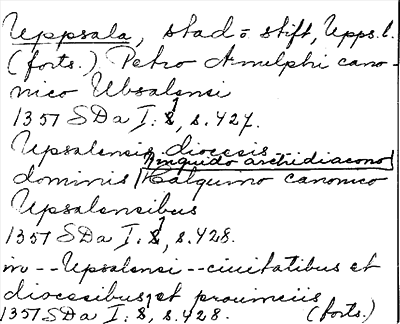 Uppsala, stad o stift, Upps. l.
(forts.) Petro Arnulphi cano-
nico Ubsalensi
1357 SDa I: 1, s. 427.
Upsalensis diocesis
Anguido archidiacono
dominis Halquino canonico
Upsalensibus
1357 SDa I: 1, s. 428.
in -- Upsalensi -- ciuitatibus et
diocesibus, et prouinciis
1357 SDa I: 1, s. 428. (forts.)